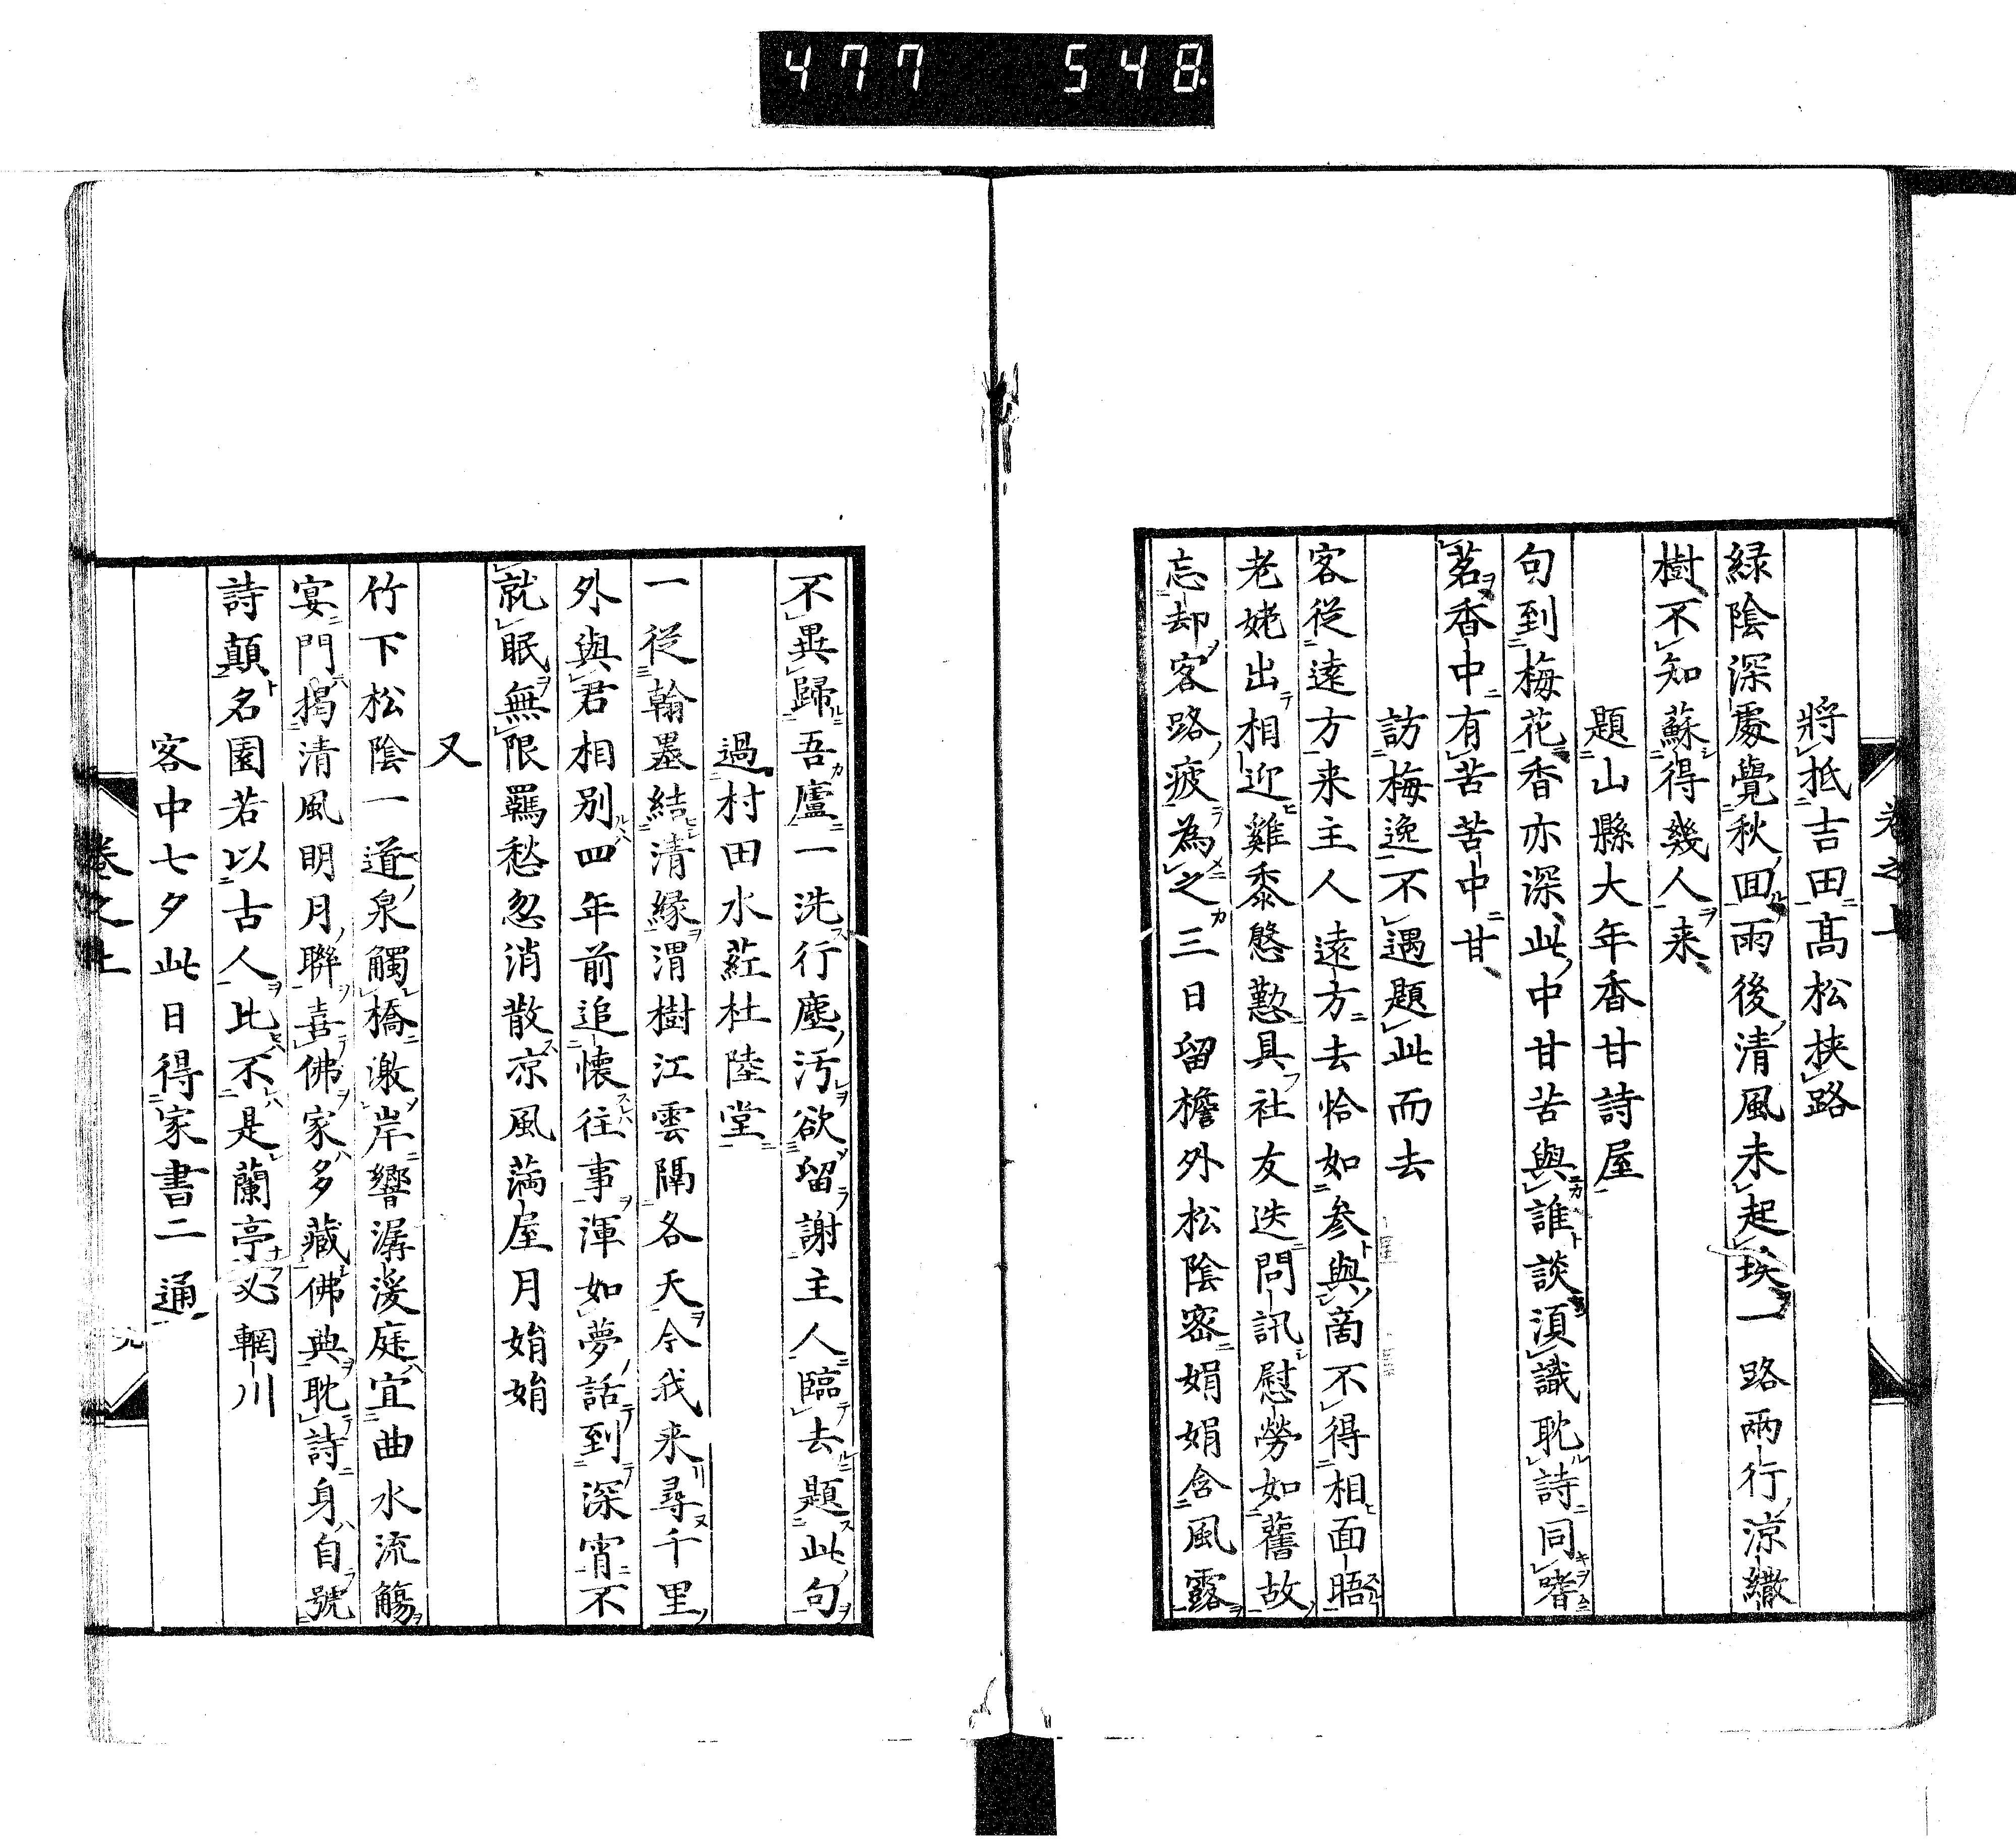 477 548
卷之上
將抵吉田髙松挾路
緑陰深處覺秋囬雨後清風未起埃一路兩行涼繖
樹不知蘇得幾人来
題山縣大年香甘詩屋
句到梅花香亦深此中甘苦與誰談湏識耽詩同嗜
茗香中有苦苦中甘
訪梅逸不遇題此而去
客従遠方来主人遠方去恰如参與啇不得相面晤
老姥出相迎雞黍慇懃具社友迭問訊慰勞如舊故
忘却客路疲為之三日留檐外松陰密娟娟含風露
不異歸吾廬一洗行塵汚欲留謝主人臨去題此句
過村田水莊杜陸堂
一従翰墨結清縁渭樹江雲隔各天今我来尋千里
外與君相別四年前追懐往事渾如夢話到深宵不
就眠無限羈愁忽消散凉風満屋月娟娟
又
竹下松陰一道泉觸橋激岸響潺湲庭宜曲水流觴
宴門揭清風明月聯喜佛家多藏佛典耽詩身自號
詩顛名園若以古人比不是蘭亭必輞川
客中七夕此日得家書二通
卷之上
九